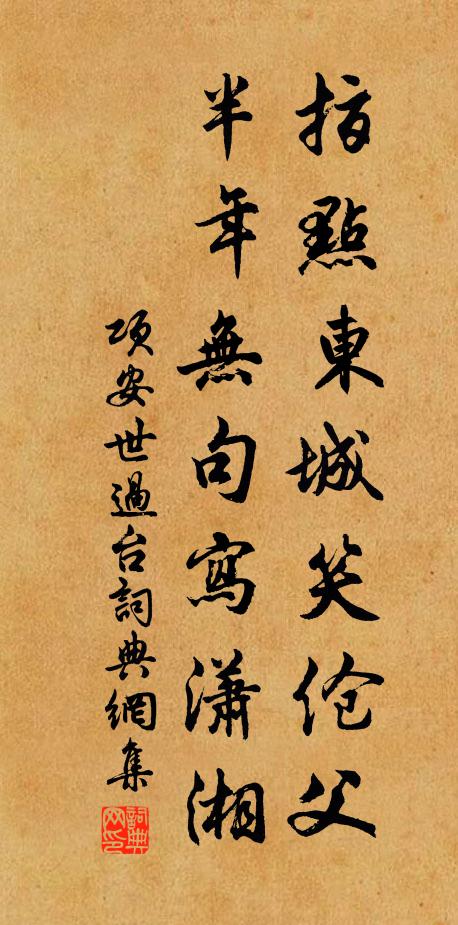 指點東城笑伧父
半年無句寫瀟湘
項安世過台詞典網集
詞典網印